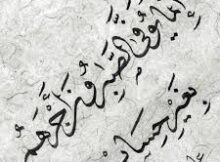 إنما يوفى الصابرون أجرهم
بغير حساب